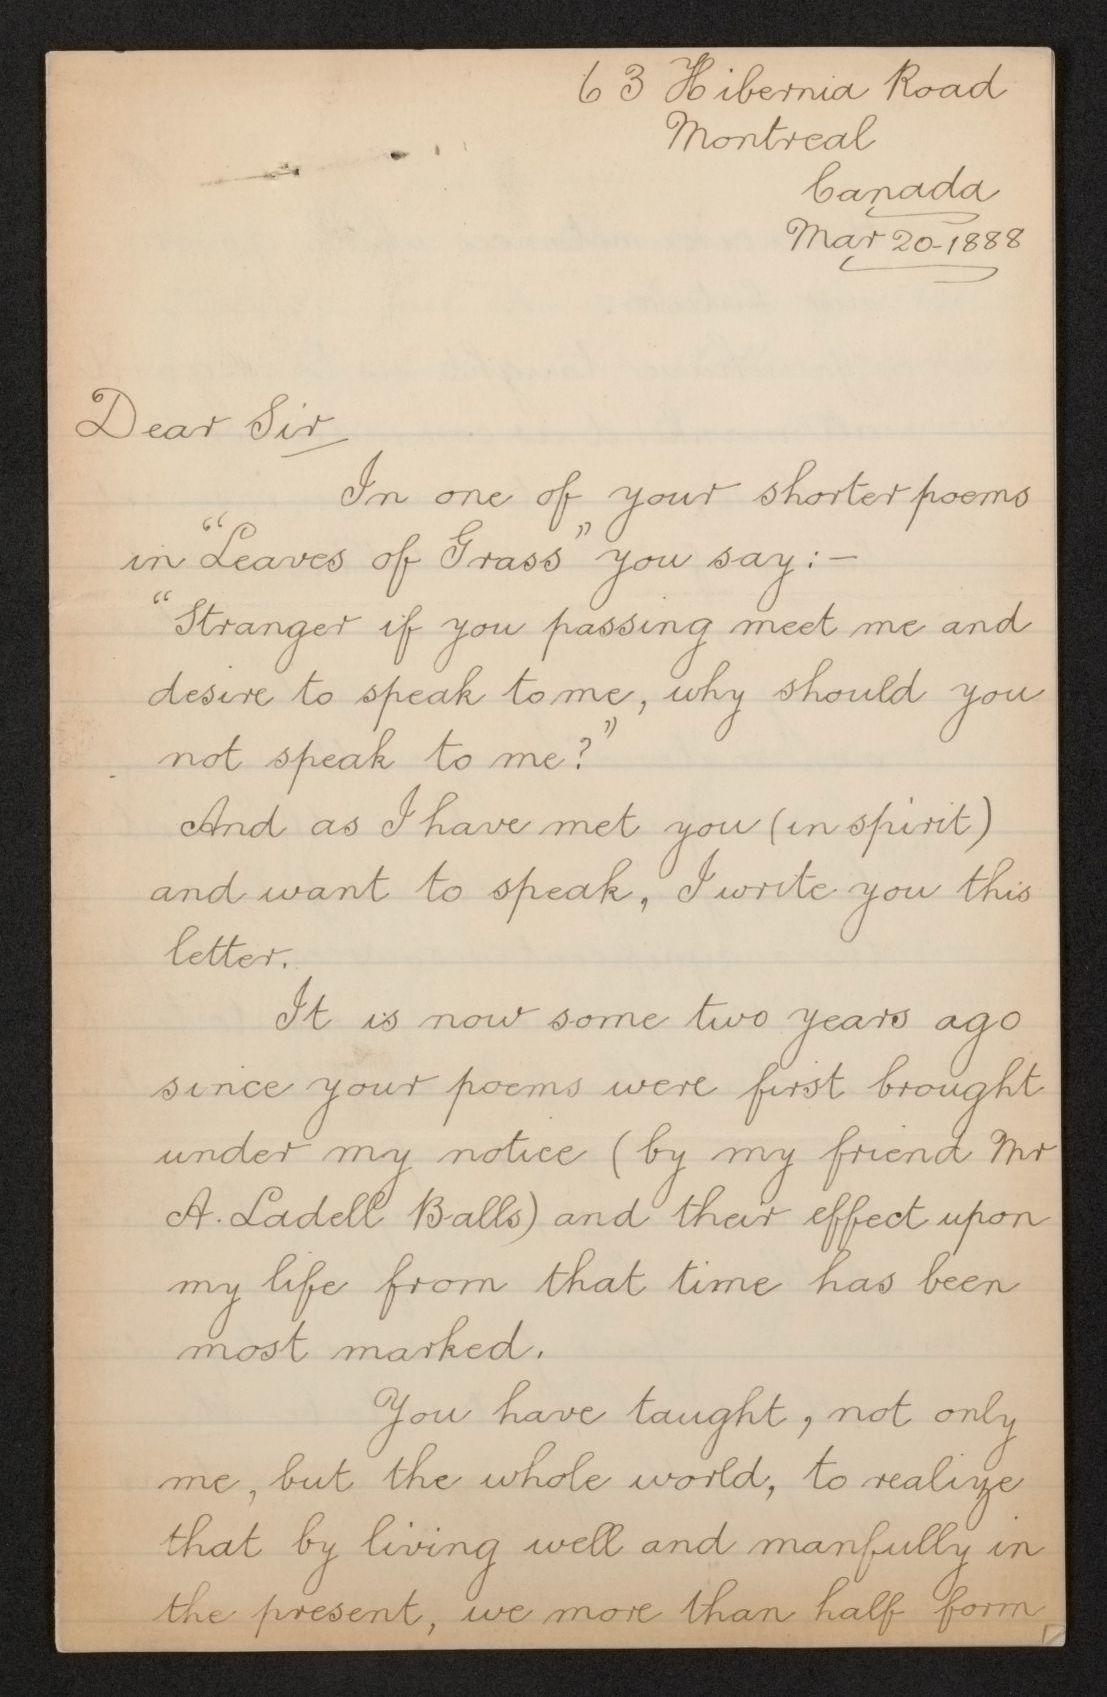 63 Hibernia Road
Montreal
Canada
Mar 20-1888
Dear Sir
In one of your shorter poems
in "Leaves of Grass" you say:—
"Stranger if you passing meet me and
desire to speak to me, why should you
not speak to me?"
And as I have met you (in spirit)
and want to speak, I write you this
letter.
It is now some two years ago
since your poems were first brought
under my notice (by my friend Mr
A. Ladell Balls) and their effect upon
my life from that time has been
most marked.
You have taught, not only
me, but the whole world, to realize
that by living well and manfully in
the present, we more than half form